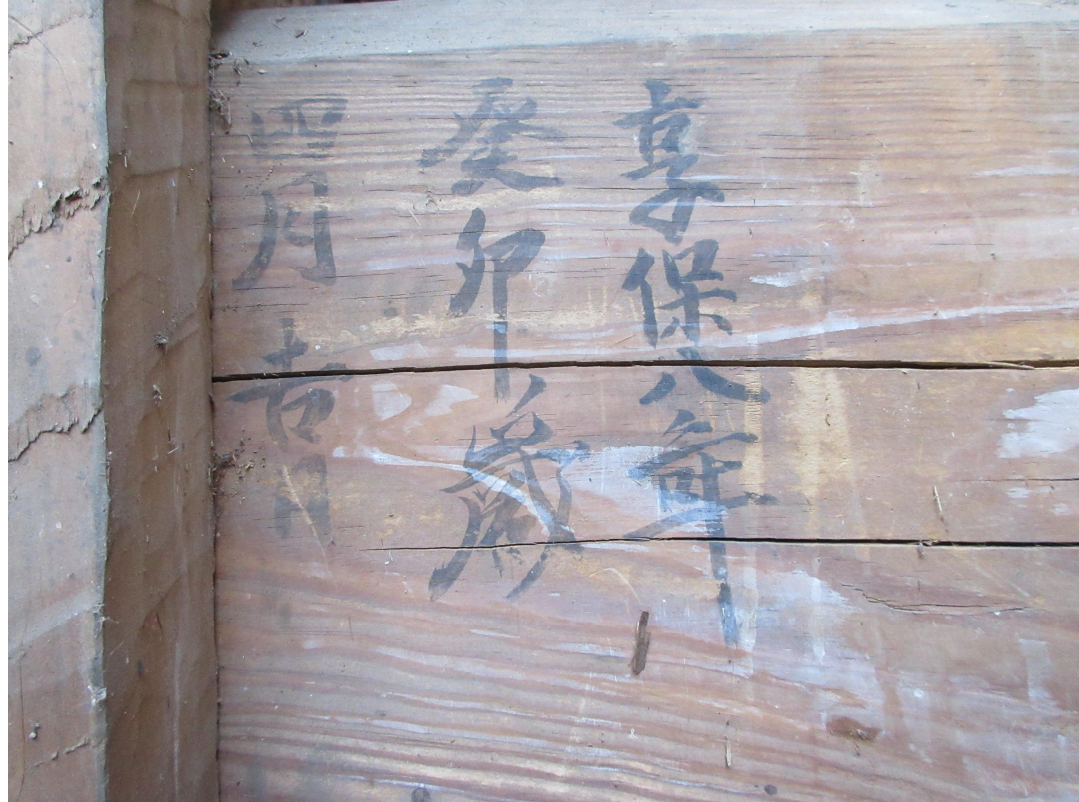 享保八年
癸卯歳
四月吉日